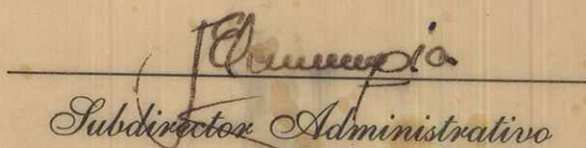 Subdirector Administrativo